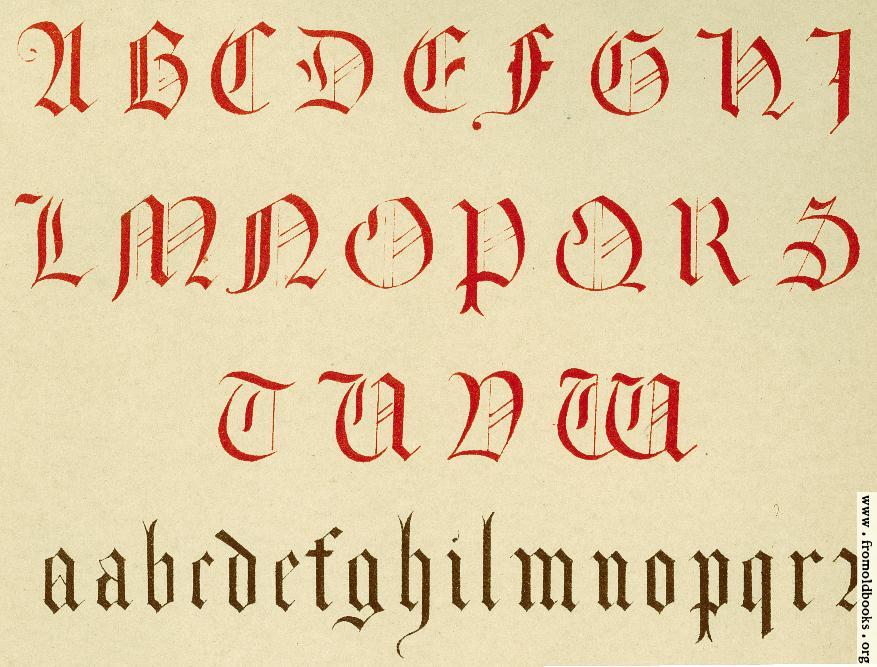 A B C D E F G H I
L M N O P Q R S
T U V W
a a b c d e f g h i l m n o p q r
www.fromoldbooks.org